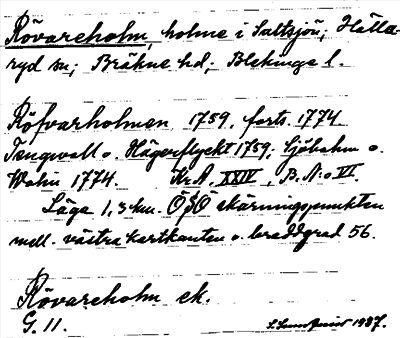 Rövareholm, holme i Saltsjön, Hälla-
ryd sn; Bräkne hd; Blekinge l.
Röfvarholmen 1759, forts. 1774
Tengwall o. Hägerflyckt 1759; Sjöbohm o.
Wahn 1774. Kr.A. XXIV, B. N:o VI.
Läge 1,3 km. ÖSO skärningspunkten
mell. västra kartkanten o. breddgrad 56.
Rövareholm ek.
G. 11. 1937.